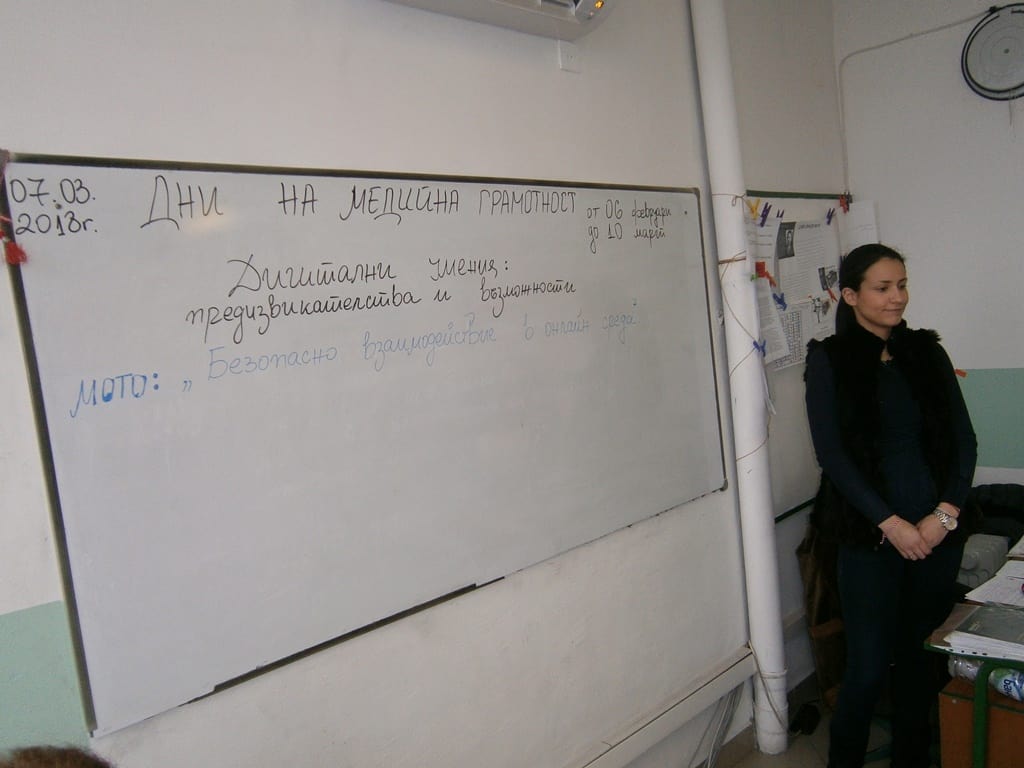 07.03.
2018г.
ДНИ НА МЕДИЙНА ГРАМОТНОСТ от 06 февруари
до 10 март
Дигитални умения:
предизвикателства и възможности
МОТО: „Безопасно взаимодействие в онлайн среда"